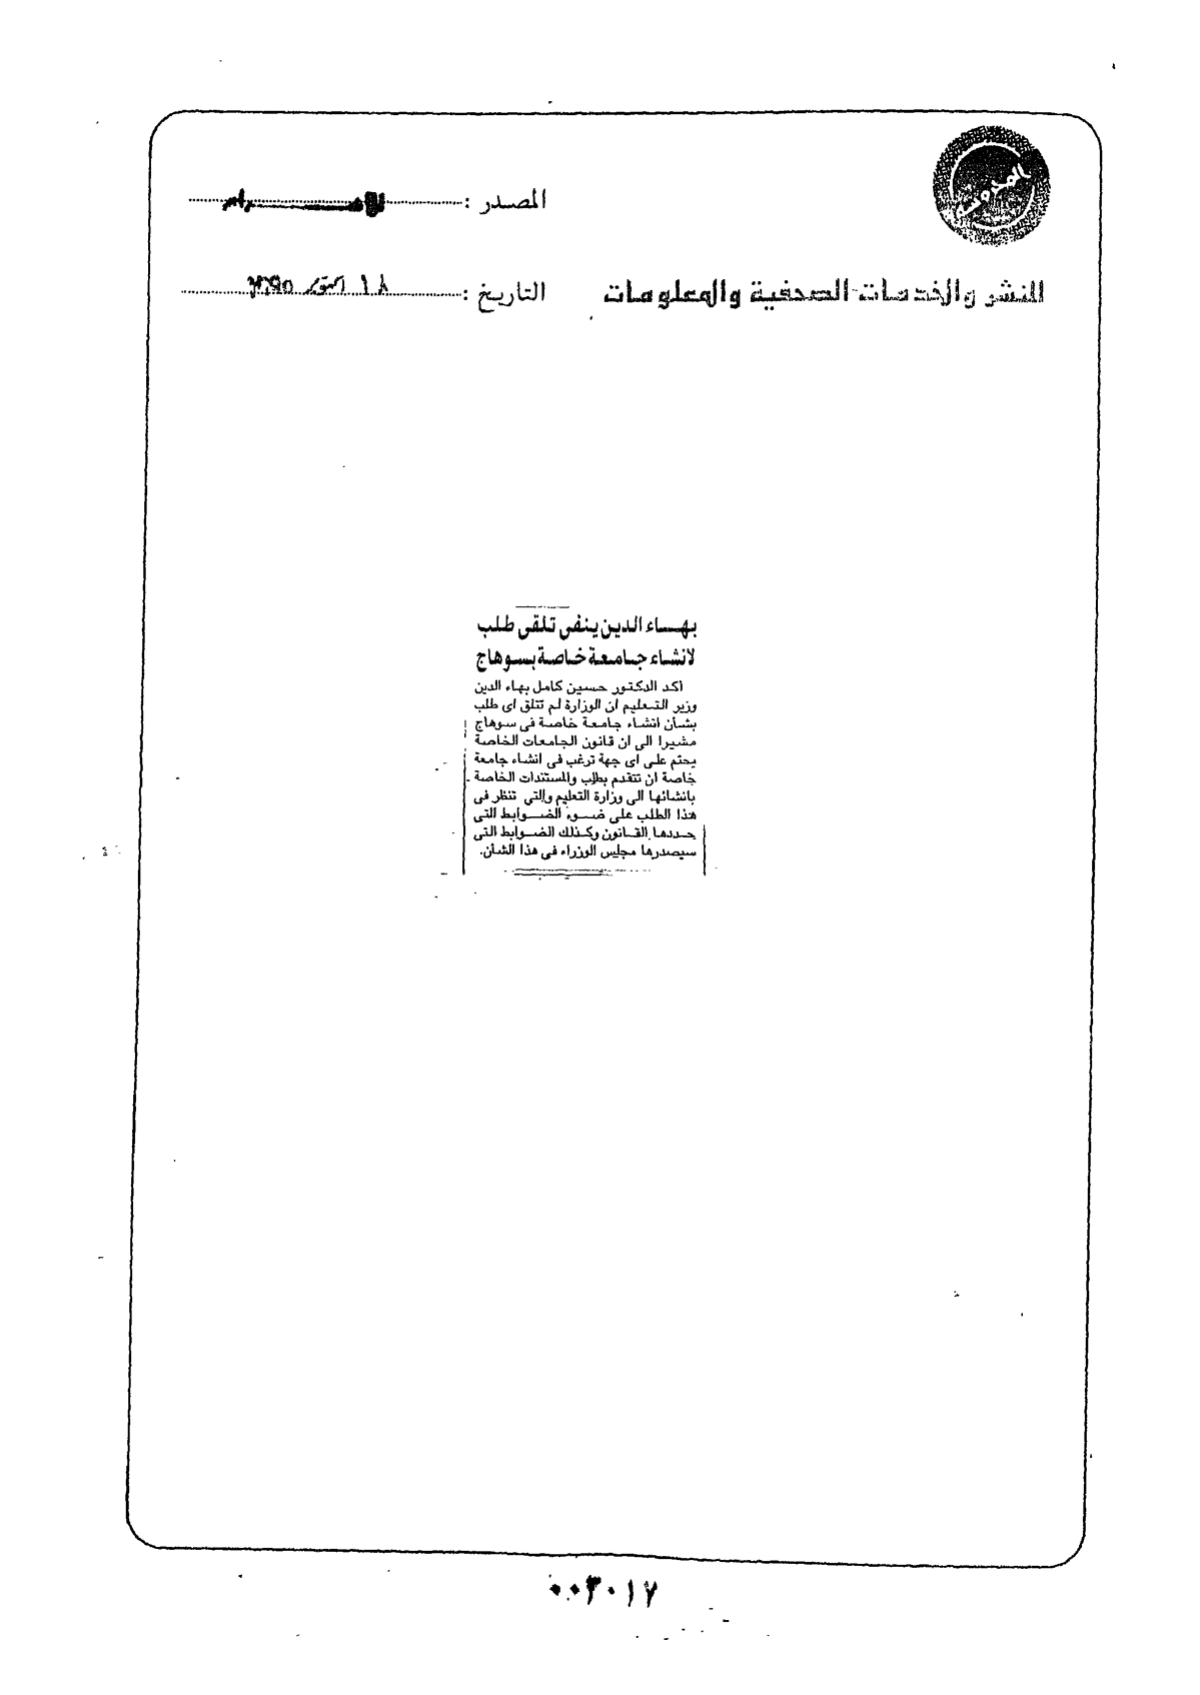 المصدر : الأهرام
للنشر والخدمات الصحفية والمعلومات
التاريخ : ١٨ اكتوبر
بهاء الدين ينفى تلقى طلب
لانشاء جامعة خاصة بسوهاج
أكد الدكتور حسين كامل بهاء الدين
وزير التعليم ان الوزارة لم تتلق اى طلب
بشأن انشاء جامعة خاصة فى سوهاج
مشيرا الى ان قانون الجامعات الخاصة
يحتم على اى جهة ترغب فى انشاء جامعة
خاصة ان تتقدم بطلب والمستندات الخاصة
بانشائها الى وزارة التعليم والتى تنظر فى
هذا الطلب على ضوء الضوابط التى
حددها القانون وكذلك الضوابط التى
سيصدرها مجلس الوزراء فى هذا الشأن.
٠٠٣٠١٧